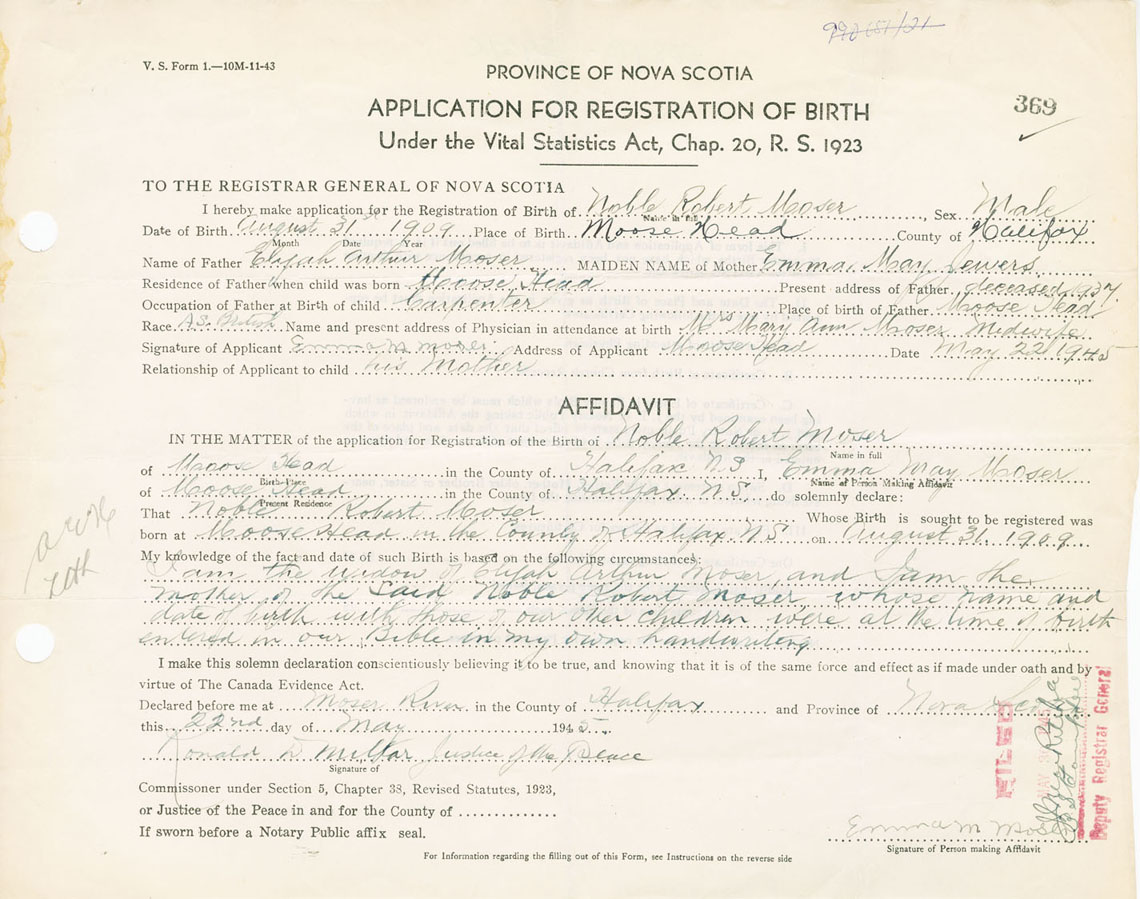 V. S. Form 1.—10M-11-43
PROVINCE OF NOVA SCOTIA
369
APPLICATION FOR REGISTRATION OF BIRTH
Under the Vital Statistics Act, Chap. 20, R. S. 1923
TO THE REGISTRAR GENERAL OF NOVA SCOTIA
I hereby make application for the Registration of Birth of Noble Robert Moser, Sex Male
Name in full
Date of Birth August 31st 1909 Place of Birth Moose Head County of Halifax
Month Date Year
Name of Father Elijah Arthur Moser MAIDEN NAME of Mother Emma May Jewers
Residence of Father when child was born Moose Head Present address of Father deceased 1937
Occupation of Father at Birth of child Carpenter Place of birth of Father Moose Head
Race British Name and present address of Physician in attendance at birth Mrs Mary Ann Moser Midwife
Signature of Applicant Emma M Moser Address of Applicant Moose Head Date May 22 1945
Relationship of Applicant to child his Mother
AFFIDAVIT
IN THE MATTER of the application for Registration of the Birth of Noble Robert Moser
Name in full
of Moose Head in the County of Halifax N S I, Emma May Moser
Birth-Place Name of Person Making Affidavit
of Moose Head in the County of Halifax N S do solemnly declare:
Present Residence
That Noble Robert Moser Whose Birth is sought to be registered was
born at Moose Head in the County of Halifax N S on August 31, 1909
My knowledge of the fact and date of such Birth is based on the following circumstances:
I am the widow of Elijah Arthur Moser and I am the
mother of the said Noble Robert Moser whose name and
date of birth with those of our other children were at the time of birth
entered in our Bible in my own handwriting
I make this solemn declaration conscientiously believing it to be true, and knowing that it is of the same force and effect as if made under oath and by
virtue of The Canada Evidence Act.
Declared before me at Moser River in the County of Halifax and Province of Nova Scotia
this 22nd day of May 1945
Ronald Justice of the Peace
Signature of
Commissoner under Section 5, Chapter 38, Revised Statutes, 1923,
or Justice of the Peace in and for the County of
If sworn before a Notary Public affix seal.
Emma M Moser
Signature of Person making Affidavit
For Information regarding the filling out of this Form, see Instructions on the reverse side
FILED
Deputy Registrar General